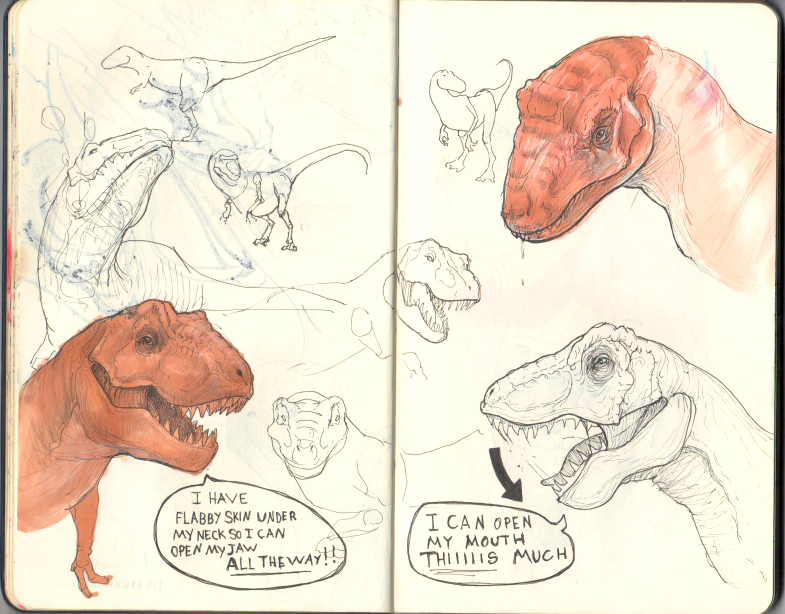 I HAVE
FLABBY SKIN UNDER
MY NECK SO I CAN
OPEN MY JAW
ALL THE WAY!!
I CAN OPEN
MY MOUTH
THIIIIIS MUCH